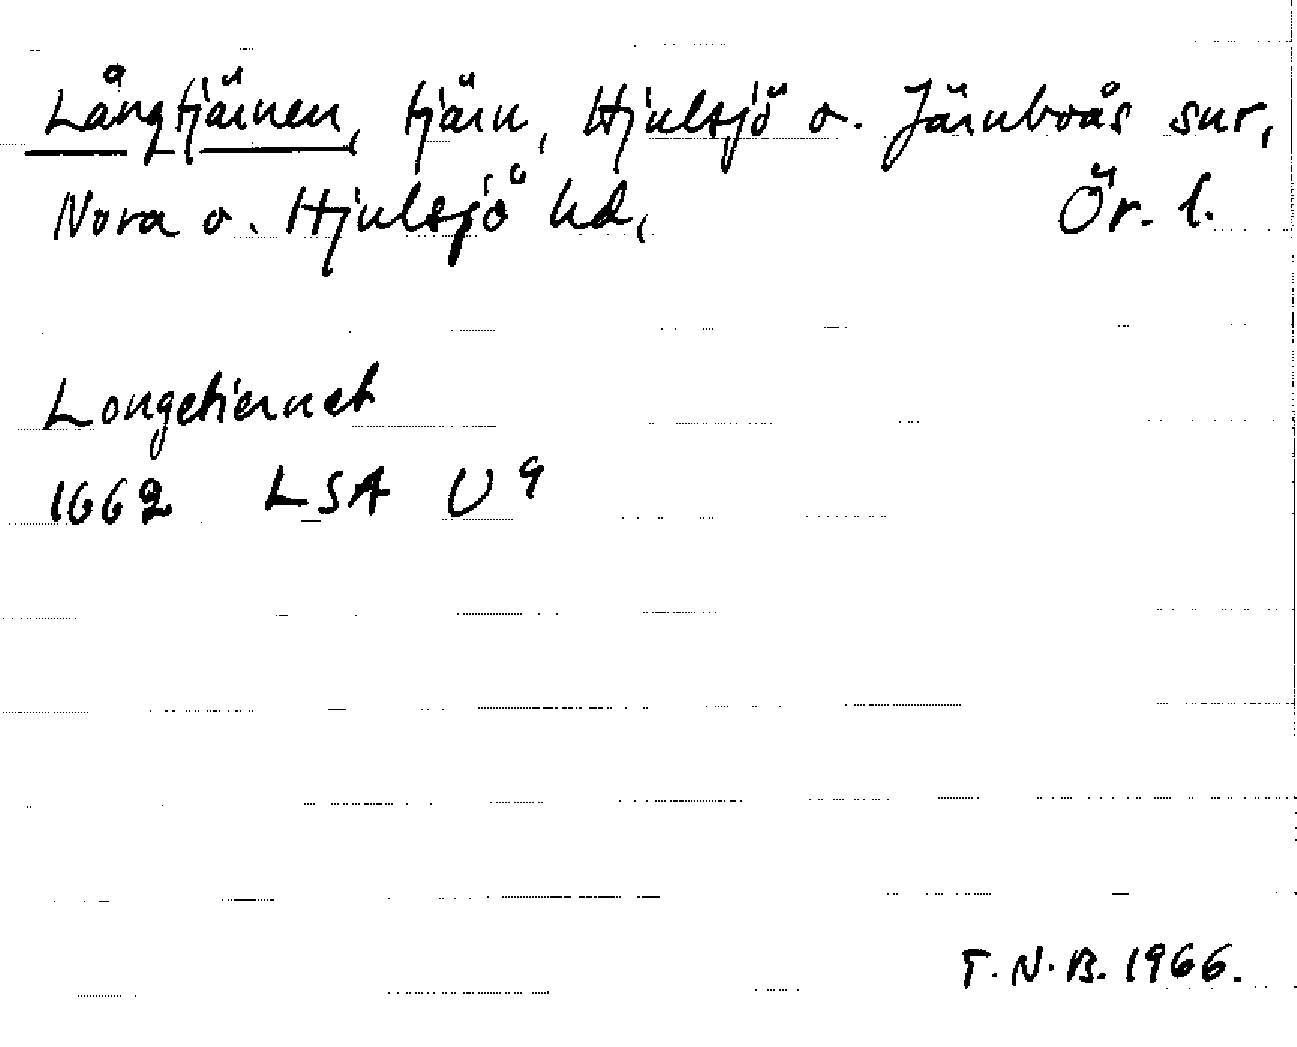 Långtjärnen, tjärn, Hjulsjö o. Järnboås snr,
Nora o. Hjulsjö hd, Ör. l.
Longetiernet
1662 LSA U 9
T.N.B. 1966.